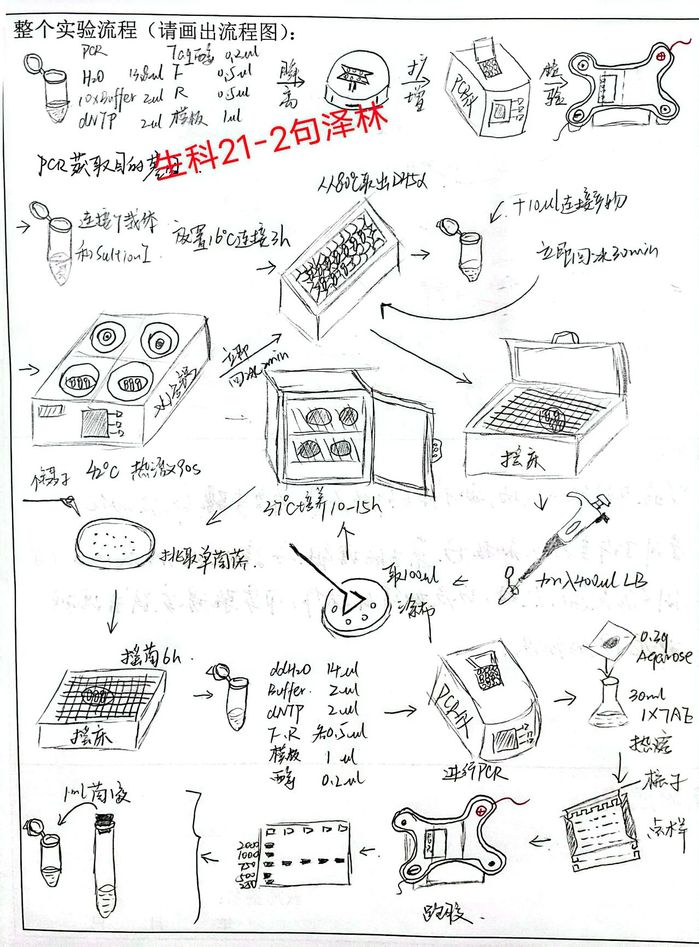 整个实验流程（请画出流程图）：
PCR Taq酶 0.2ul
H2O 13.8ul F 0.5ul
10xBuffer 2ul R 0.5ul
dNTP 2ul 模板 1ul
离
扩增
PCR仪
检验
PCR获取目的基因.
生科21-2句泽林
从80℃取出DH5α
连接T载体
和Sultion I
放置16℃连接3h
+10ul连接产物
立即回冰30min
立即
回冰2min
水浴锅
42℃ 热激90s
摇床
37℃培养10-15h
挑取单菌落
取100ul
涂布
加入400ul LB
摇菌6h
摇床
ddH2O 14ul
Buffer 2ul
dNTP 2ul
F.R 各0.5ul
模板 1ul
酶 0.2ul
PCR仪
进行PCR
0.3g
Agarose
30ml
1XTAE
梳子
点样
跑胶.
2000
1000
750
500
250
1ml菌液